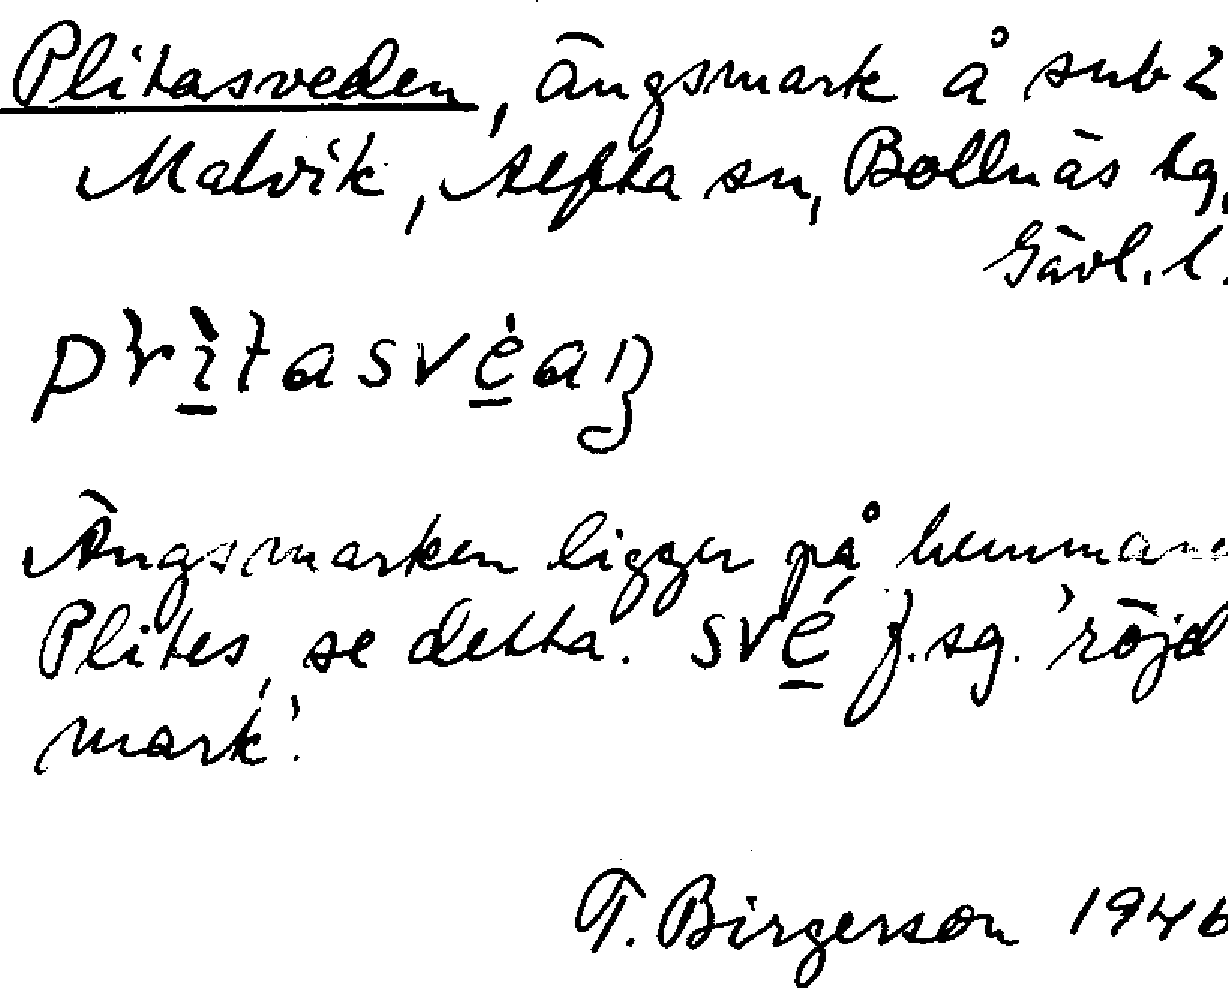 Plitasveden, ängsmark å sub 2
Malvik, Alfta sn, Bollnäs tg,
Gävl. l.
Ängsmarken ligger på hemmana
Plites, se detta. své f. sg. 'röjd
mark'.
T. Birgerson 1946